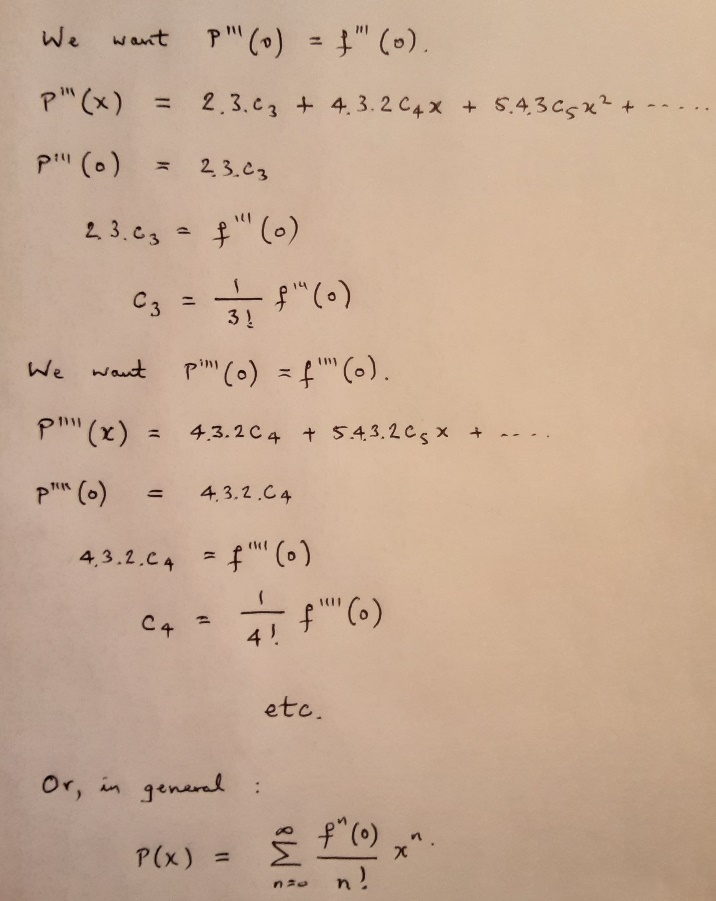 We want P'''(0) = f'''(0).
P'''(x) = 2.3.C₃ + 4.3.2C₄x + 5.4.3C₅x² + -----
P'''(0) = 2.3.C₃
2.3.C₃ = f'''(0)
C₃ = 1/3! f'''(0)
We want P''''(0) = f''''(0).
P''''(x) = 4.3.2C₄ + 5.4.3.2C₅x + ----
P''''(0) = 4.3.2.C₄
4.3.2.C₄ = f''''(0)
C₄ = 1/4! f''''(0)
etc.
Or, in general :
P(x) = ∑_{n=0}^{∞} fⁿ(0)/n! xⁿ.